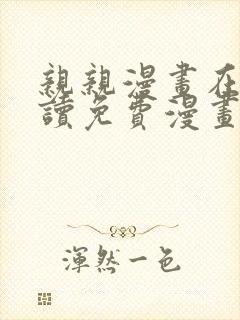 親親漫畫在
讀免費漫畫
渾然一色